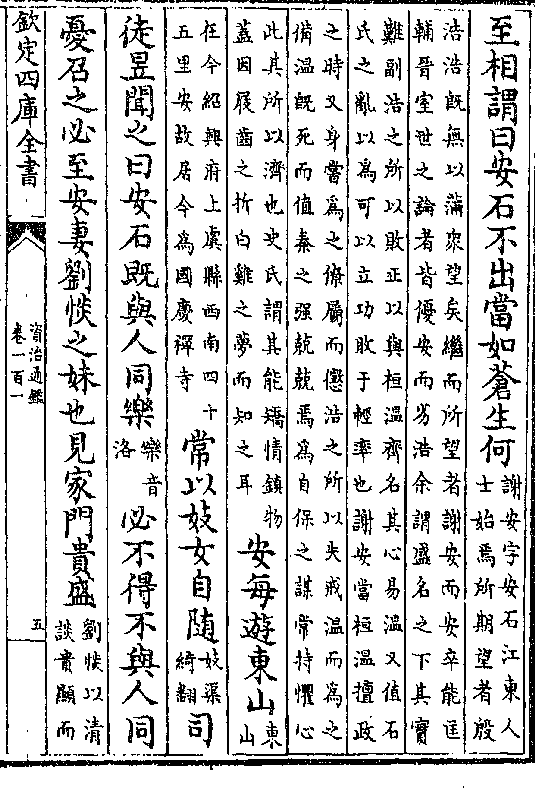 至相謂曰安石不出當如蒼生何
謝安字安石江東人
士始焉所期望者殷
浩浩既無以滿衆望矣繼而所望者謝安而安卒能匡
輔晉室世之論者皆優安而劣浩余謂盛名之下其實
難副浩之所以敗正以與桓溫齊名其心易溫又值石
氏之亂以為可以立功敗于輕率也謝安當桓溫擅政
之時又身嘗為之僚屬而懲浩之所以失戒溫而為之
備溫既死而值秦之强兢兢焉為自保之謀常持懼心
此其所以濟也史氏謂其能矯情鎮物
蓋因屐齒之折白雞之夢而知之耳
安每遊東山
東
山
在今紹興府上虞縣西南四十
五里安故居今為國慶禪寺
常以妓女自隨
妓渠
綺翻
司
徒昱聞之曰安石既與人同樂
樂音
洛
必不得不與人同
憂召之必至安妻劉惔之妹也見家門貴盛
劉惔以清
談貴顯而
欽定四庫全書
資治通鑑
卷一百一
五